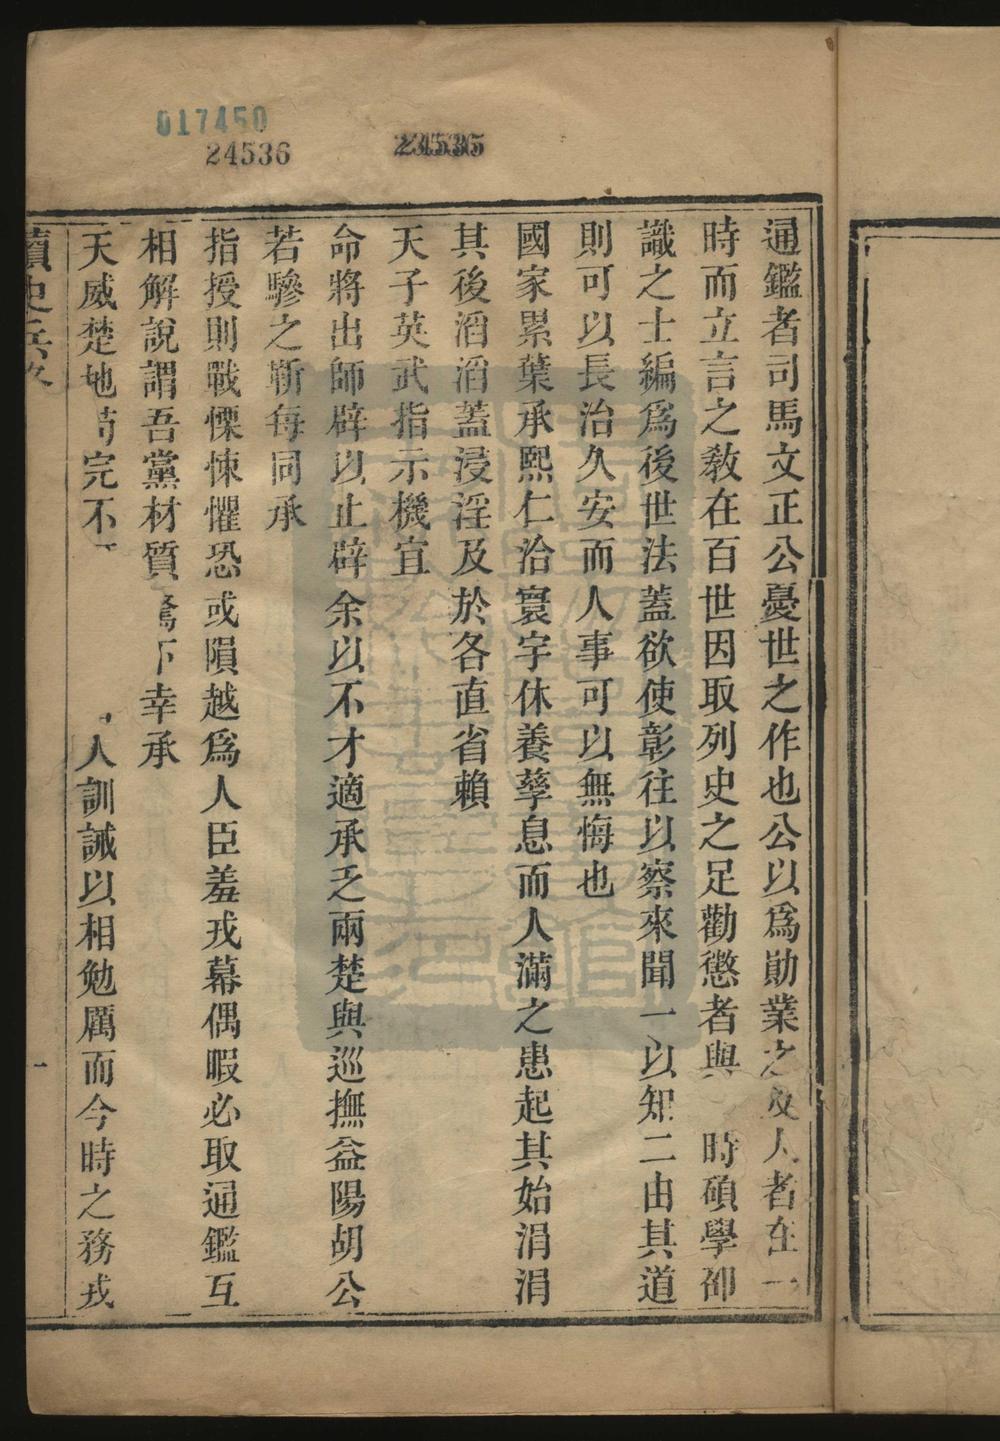 017450
24536
通鑑者司馬文正公憂世之作也公以爲勛業之及人者在一
時而立言之教在百世因取列史之足勸懲者與 時碩學卲
識之士編爲後世法蓋欲使彰往以察來聞一以知二由其道
則可以長治久安而人事可以無悔也
國家累葉承熙仁洽寰宇休養孳息而人滿之患起其始涓涓
其後滔滔蓋浸淫及於各直省賴
天子英武指示機宜
命將出師辟以止辟余以不才適承乏兩楚與巡撫益陽胡公
若驂之靳每同承
指授則戰慄悚懼恐或隕越爲人臣羞戎幕偶暇必取通鑑互
相解說謂吾黨材質駑下幸承
天威楚地苟完不 人訓誡以相勉厲而今時之務戎
讀史兵
一